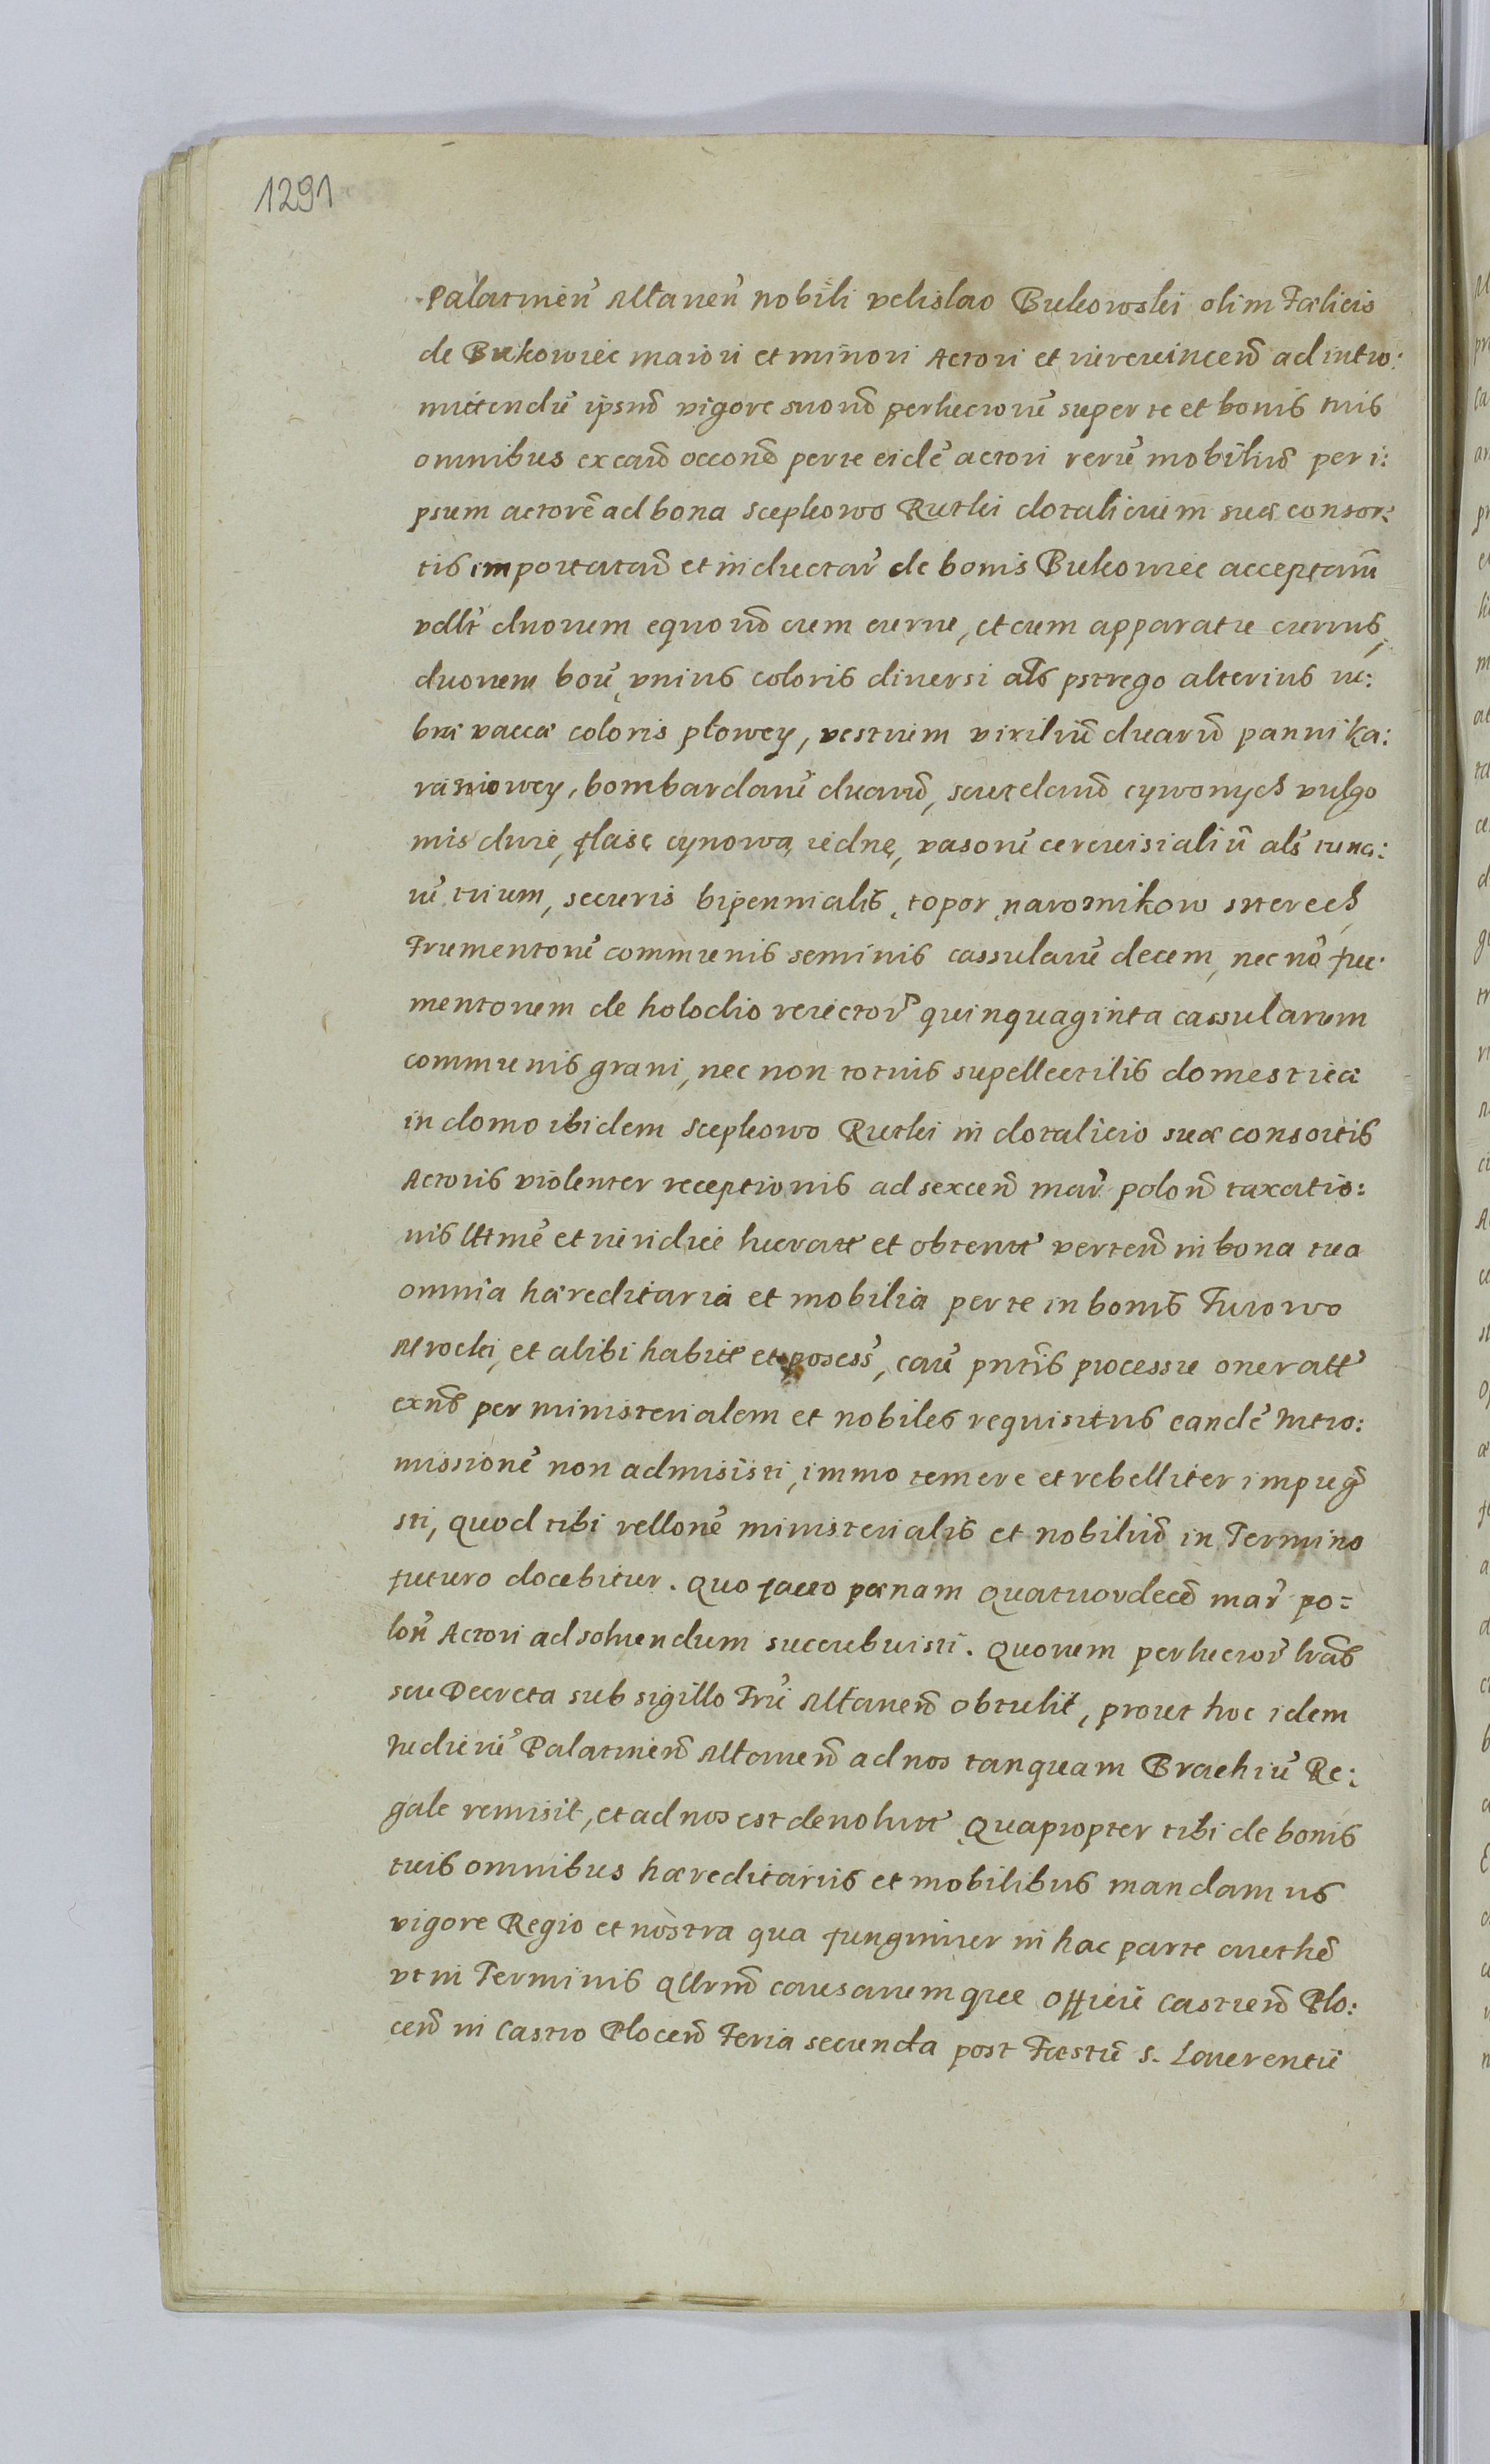 1291
Palatineñ Mlaueñ nobili velislao Bukowski olim Fælicis
de Bukowiec maiori et minori Actori et iurevinceñ ad intro:
mittendũ ipsuȝ vigore suoȝ perlucroȝ super te et bonis tuis
omnibus ex eaȝ occonȝ per te eidẽ actori rerũ mobiliuȝ per i:
psum actorẽ ad bona Scepkowo Rutki dotalicium suæ consor:
tis importataȝ et inductar̃ de bonis Bukowiec acceptarũ
vdlt duorum equoȝ cum curru, et cum apparatu currus,
duorum boũ, vnius coloris diversi als pstrego alterius ru:
bri vaccæ coloris płowey, vestium viriliũ duarũ panni ka:
raziowey, bombardarũ duaȝ, scutelaȝ cynowych vulgo
mis dwie, flasę cynową iednę, vasorũ cerevisialiũ als
trium, securis bipennialis, topor, narożnikow szterech
Frumentorũ communis seminis cassularũ decem, nec nõ fru:
mentorum de holodio reiector̃ quinquaginta cassularum
communis grani, nec non totius supellectilis domesticæ
in domo ibidem Scepkowo Rutki in dotalicio suæ consortis
Actoris violenter receptionis ad sexceñ mar̃ poloñ taxatio:
nis lttmẽ et iuridicẽ lucratt et obtentt verteñ in bona tua
omnia hæreditaria et mobilia per te in bonis Turowo
Mrocki, et alibi habitẽ et posess̃, caũ pntis processu oneratt
exñs per ministerialem et nobiles requisitus eandẽ Intro:
missionẽ non admisisti, immo temere et rebelliter impug̃
sti, quod tibi rellonẽ ministerialis et nobiliũ in Termino
futuro docebitur. Quo facto pænam Quatuordecẽ mar̃ po:
loñ Actori ad solvendum succubuisti. Quorum perlucror̃ lras
seu Decreta sub sigillo Trũ Mlaueñ obtulit, prout hoc idem
Iudiciũ Palatineñ Mlaueñ ad nos tanquam Brachiũ Re:
gale remisit, et ad nos est devolutt Quapropter tibi de bonis
tuis omnibus hæreditariis et mobilibus mandamus
vigore Regio et nostra qua fungimur in hac parte authẽ
vt in Terminis qllruȝ causarumque officii Castreñ Plo:
ceñ in Castro Ploceñ Feria secunda post Fæstũ S. Laurentii